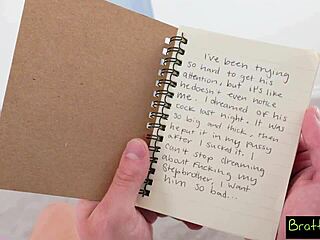 I've been trying
so hard to get his
attention, but it's like
he doesn't even notice
me. I dreamed of his
cock last night. It was
so big and thick, then
he put it in my pussy
after I sucked it. I
can't stop dreaming
about fucking my
stepbrother, I want
him so bad...
Bratt